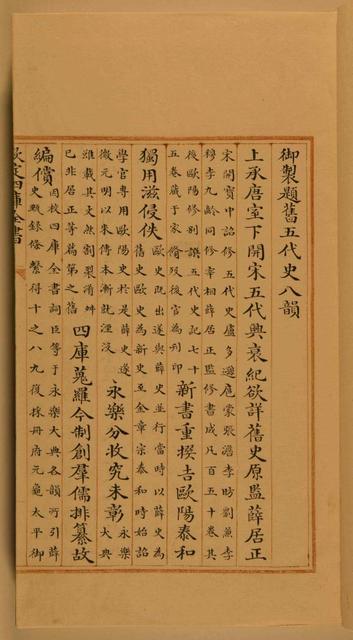 御製題舊五代史八韻
上承唐室下開宋五代興衰紀欲詳舊史原監薛居正
宋開寶中詔修五代史盧多遜扈蒙張澹李昉劉兼李
穆李九齡同修宰相薛居正監修書成凡百五十卷其
後歐陽修別譔五代史記七十
五卷藏于家脩歿後官為刊印
新書重撰吉歐陽泰和
獨用滋侵佚
歐史既出遂與薛史並行當時以薛史為
舊史歐史為新史至金章宗泰和時始詔
學官専用歐陽史於是薛史遂
微元明以來傳本漸就湮沒
永樂分收究未彰
永樂
大典
雖載其文然割裂淆舛
已非居正等篇第之舊
四庫蒐羅今制創羣儒排纂故
編償
因校四庫全書詞臣等于永樂大典各韻所引薛
史甄錄條繫得十之八九復採冊府元龜太平御
欽定四庫全書